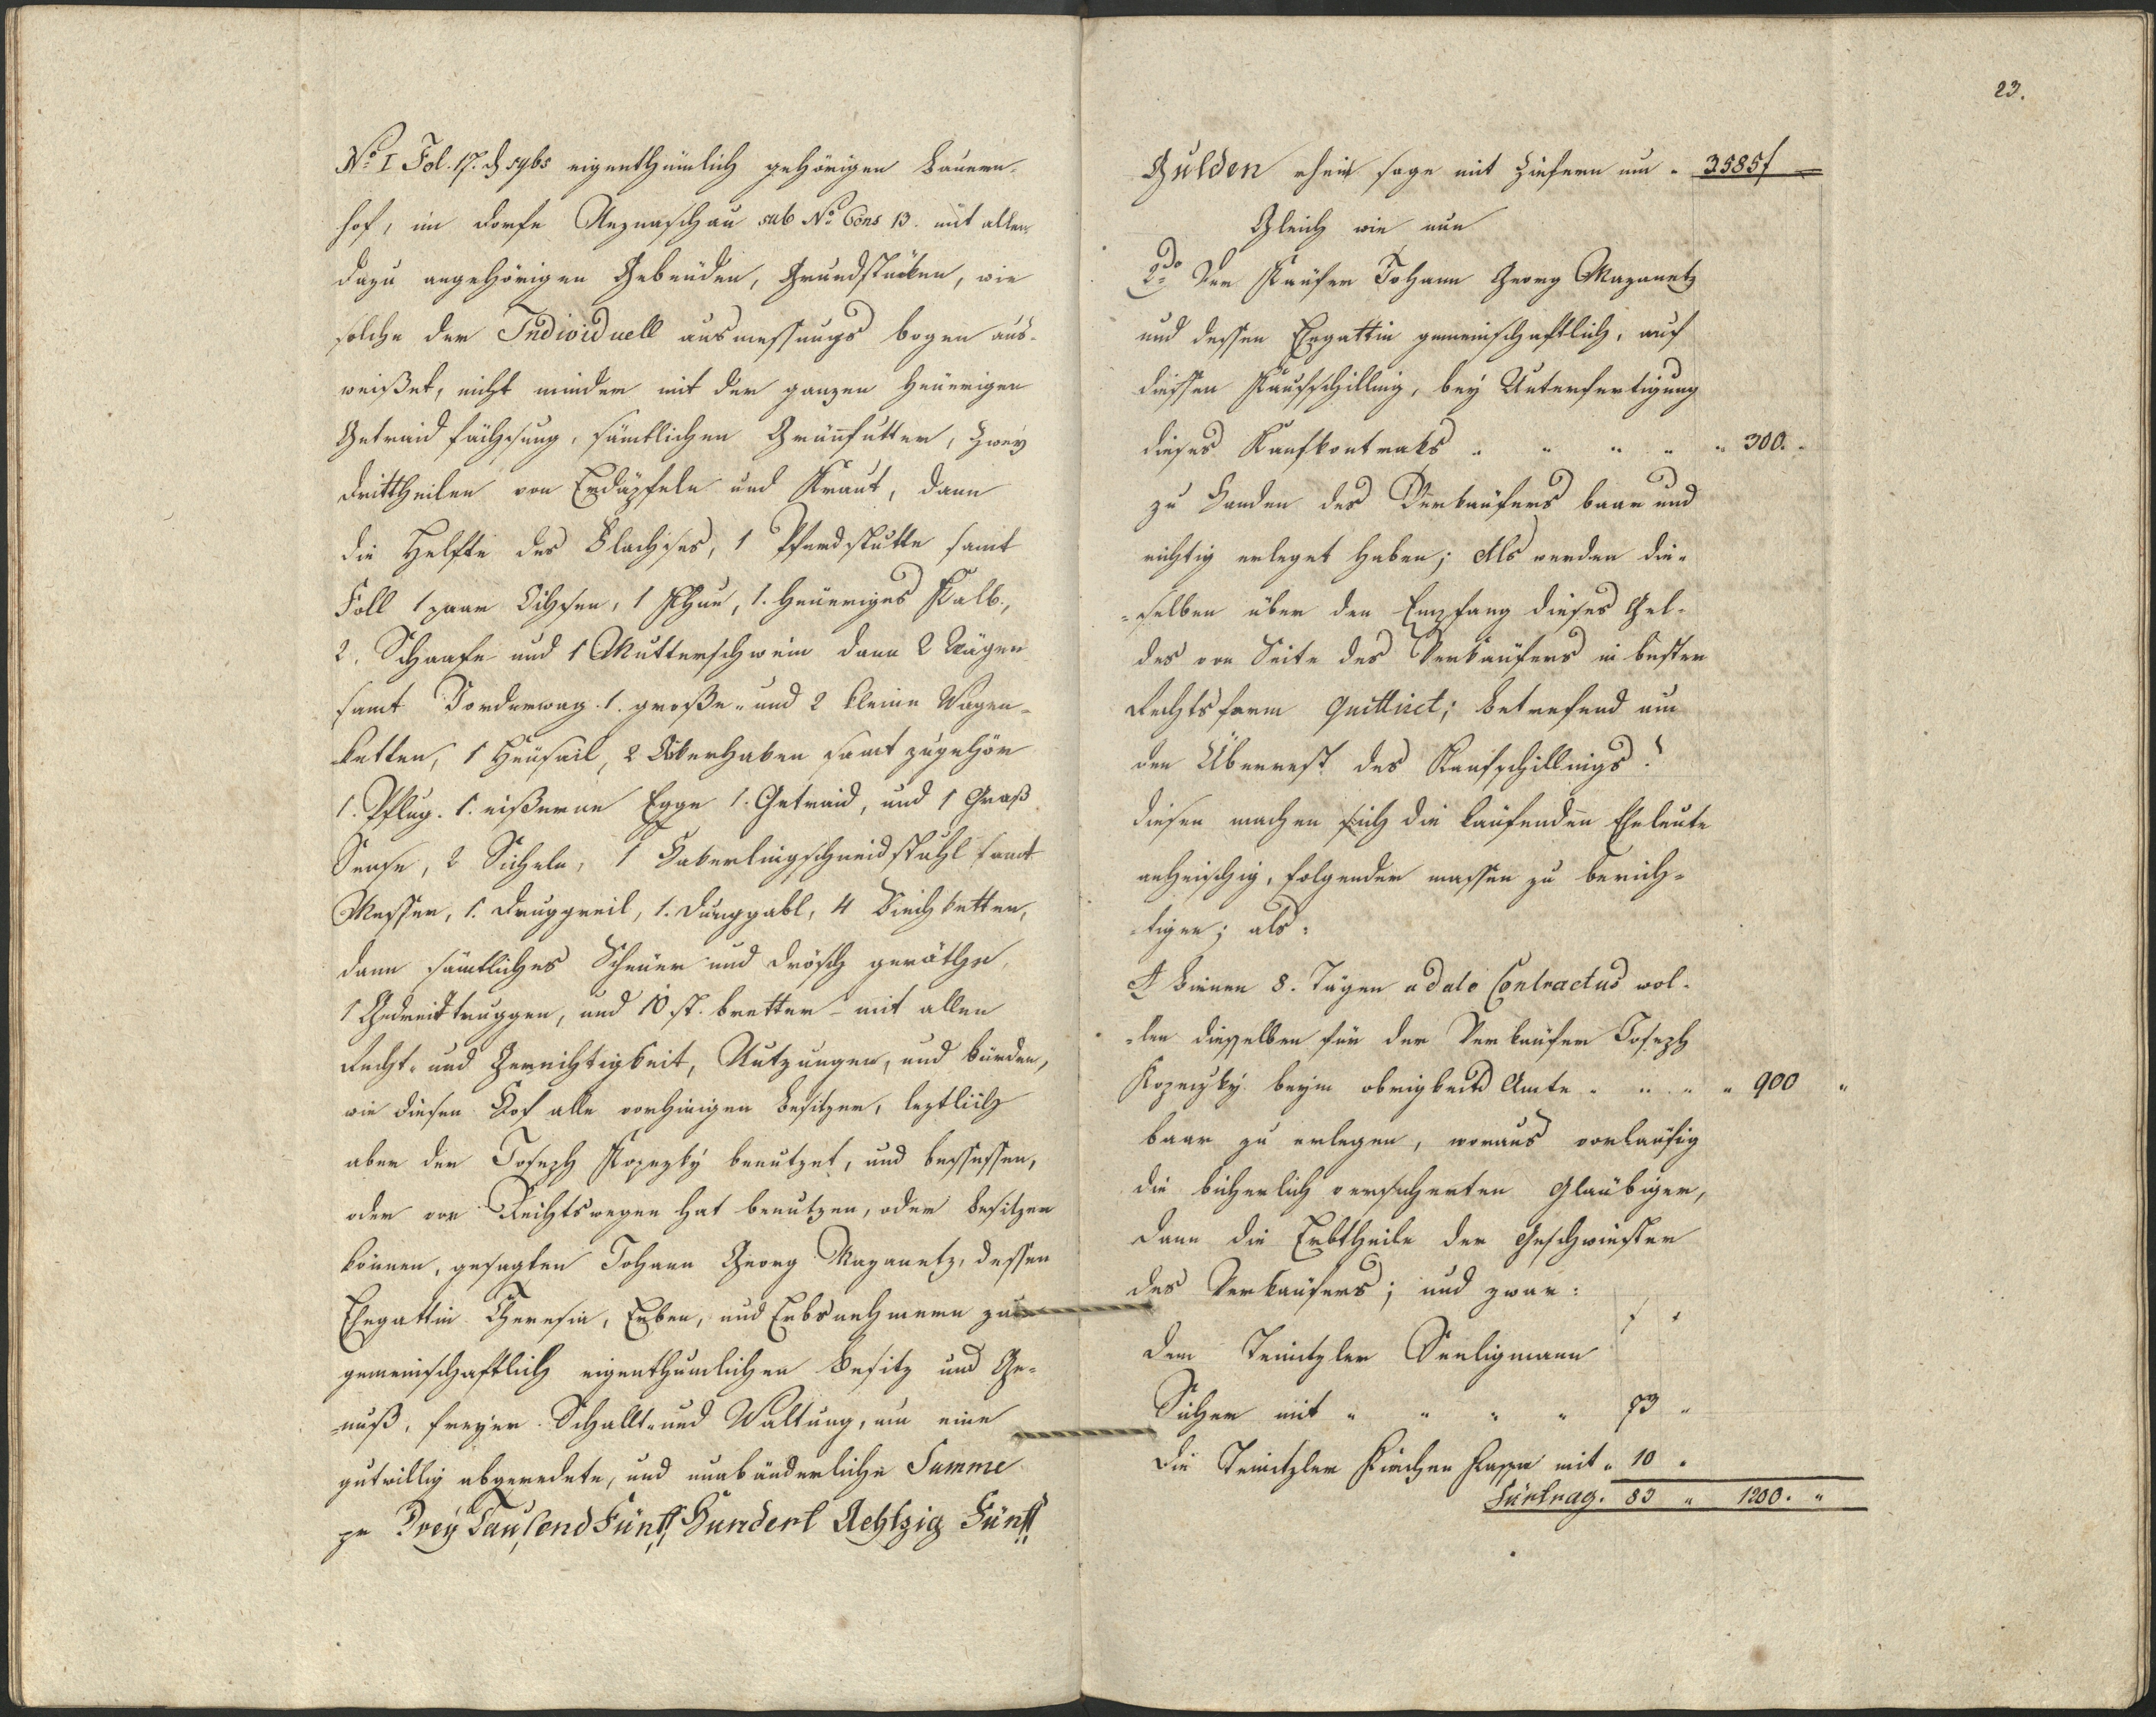 No I Fol. 17. & sybs eigenthümlich gehörigen Bauern-
hof, im Dorfe Aeznaschau sub No Cons 13. mit allen
dazu angehörigen Gebeüden, Grundstüken, wie
solche der Individuell ausmessungs bogen aus-
weißet, nicht minder mit der ganzen heüerigen
Getraid fächsung, sämtlichen Grünfutter, zwey
drittheilen von Erdäpfeln und Kraut, dann
die Helfte des Flachses, 1 Pferd stutte samt
Foll 1 paar Ochsen, 1 Khue, 1. heüeriges Kalb,
2. Schaafe und 1 Mutterschwein dann 2 Wägen
samt Vorderwag. 1. große- und 2 kleine Wagen-
ketten, 1 Heüsail, 2 Akerhaken samt zugehör
1. Pflug. 1. eißerne Egge 1. Getraid, und 1 Graß
Sense, 2 Sicheln, 1 Hakerlingschneidstuhl samt
Messer, 1. 1. Dunggabl, 4 Viechketten,
dann sämtliches Scheüer und Drösch geräthe,
1 Gedreittruggen, und 10 st. bretter - mit allen
Recht- und Gerechtigkeit, Nutzungen, und bürden,
wie diesen Hof alle vorhinigen Besitzer, leztlich
aber der Joseph Kopezky benutzet, und bessessen,
oder von Rechtswegen hat benutzen, oder besitzen
können, gesagten Johann Georg Mazanetz, dessen
Ehegattin Theresia, Erben, und Erbsnehmern zum
gemeinschaftlich eigenthumlichen Besitz und Ge-
nuß, freyer Schallt- und Waltung, um eine
gutwillig abgeredete, und unabänderliche Summe
pr Drey Tausend Fünf Hundert Achtzig Fünf
23.
Gulden rhein sage mit Ziefern um " 3585 f —
Gleich wie nun
2do Der Käufer Johann Georg Mazanetz
und dessen Ehegattin gemeinschaftlich, auf
diessen Kaufschilling, bey Unterfertigung
dieses Kaufkontrakts " " " " " 300. "
zu Handen des Verkäufers baar und
richtig erleget haben; Als werden die-
-selben über den Empfang dieses Gel-
des von Seite des Verkäufers in bester
Rechtsform quittiret; betrefend nun
den Überrest des Kaufschillings?
diesen machen sich die kaufenden Eheleute
anheischig, folgender massen zu berich-
-tigen; als:
A Binnen 8. Tägen a dato Contractus wol-
-len dieselben für der Verkäufer Joseph
Kopezky beym obrigkeitl Amte " " " " 900 "
baar zu erlegen, woraus vorläufig
die bücherlich versicherten Glaübiger,
dann die Erbtheile der Geschwister
des Verkäufers; und zwar:
f "
dem Teinitzler Seeligmann
Sicher mit " " " " 73 "
Die Teinitzler Kirchen Kassa mit " 10 "
Fürtrag. 83 " 1200. "